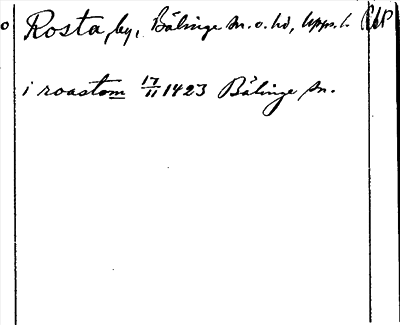 o Rosta, by, Bälinge sn. o. hd, Upps. l.
i roastom 17/11 1423 Bälinge sn.